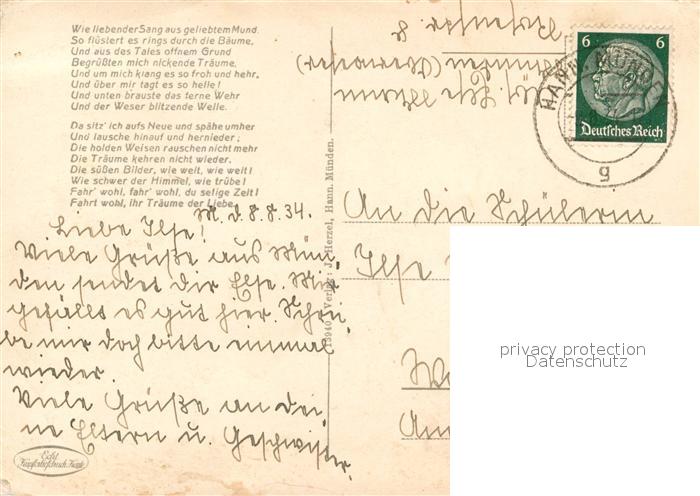 Wie liebender Sang aus geliebtem Mund.
So flüstert es rings durch die Bäume,
Und aus des Tales offnem Grund
Begrüßten mich nickende Träume,
Und um mich klang es so froh und hehr,
Und über mir tagt es so helle!
Und unten brauste das ferne Wehr
Und der Weser blitzende Welle.
Da sitz' ich aufs Neue und spähe umher
Und lausche hinauf und hernieder;
Die holden Weisen rauschen nicht mehr
Die Träume kehren nicht wieder.
Die süßen Bilder, wie weit, wie weit!
Wie schwer der Himmel, wie trübe!
Fahr' wohl, fahr' wohl, du selige Zeit!
Fahrt wohl, ihr Träume der Liebe.
M. d. 8.8.34.
Liebe Ilse!
Viele Grüße aus Mün-
den sendet dir Else. Mir
gefällt es gut hier. Schrei-
be mir doch bitte einmal
wieder.
Viele Grüße an dei-
ne Eltern u. Geschwister.
Echt
Kupfertiefdruck Karte
Verlag: J. Herzel, Hann. Münden.
Else
Münden (Weserstr)
8
6 6
Deutsches Reich
HANN. MÜNDEN
g
An die Schülerin
Ilse
Am
privacy protection
Datenschutz